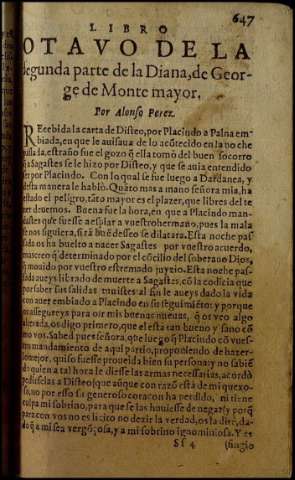 647
LIBRO
OTAVO DE LA
segunda parte de la Diana, de Geor-
ge de Monte mayor.
Por Alonso Perez.
REcebida la carta de Disteo, por Placindo a Palna em-
biada, en que le auisaua de lo acõtecido en la noche
passada, estraño fue el gozo q̃ ella tomò del buen socorro
q̃ a Sagastes se le hizo por Disteo, y que se auia entendido
ser por Placindo. Con lo qual se fue luego a Dardanea, y
desta manera le hablò. Quãto mas a mano señora mia, ha
estado el peligro, tãto mayor es el plazer, que libres del te
ner deuemos. Buena fue la hora, en que a Placindo man-
dastes que fuesse a esplar a vuestro hermano, pues la mala
se nos siguiera, si tãto deseo se dilatara. Esta noche pas
sada os ha buelto a nacer Sagastes por vuestro acuerdo,
mas creo q̃ determinado por el cõcilio del soberano Dios,
q̃ mouido por vuestro estremado juyzio. Esta noche pas-
sada aueys librado de muerte a Sagastes, cõ la codicia que
por saber sus salidas tuuistes al fin le aueys dado la vida
con auer embiado a Placindo en su seguimiẽto: y porque
os assegureys para oir mis buenas nueuas, q̃ os veo algo
alterada, os digo primero, que el esta tan bueno y sano cõ
mo vos. Sabed pues señora, que luego q̃ Placindo cõ vues-
tro mandamiento de aqui partio, proponiendo de hazer-
lo mejor, quiso fuesse proueida bien su persona y no sabiẽ
do quien a tal hora le diesse las armas necessarias, acordò
pedirselas a Disteo (que aũque con razõ està de mi quexo-
so, no por esso su generoso coraçon ha perdido, ni tiene
culpa mi sobrino, para que se las houiesse de negar) y porq̃
para con vos no es licito no dezir la verdad, os la dire, da-
do q̃ a mi sea vergõçosa, y a mi sobrino ignominiosa. Y es
Sf 4
(fingio